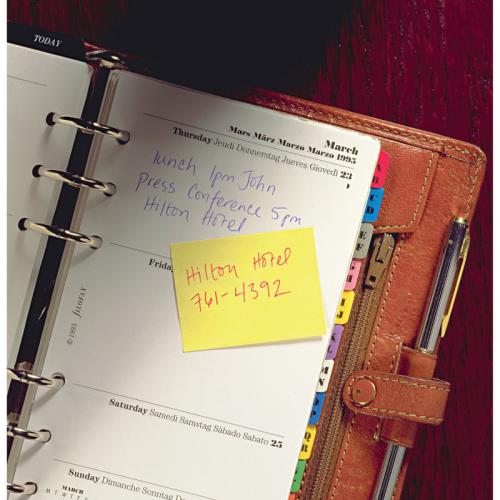 TODAY
March
Mars März Marzo Marzo 1995
Thursday Jeudi Donnerstag Jueves Giovedì 23
lunch 1pm John
Press Conference 5pm
Hilton Hotel
Friday
Hilton Hotel
761-4392
© 1993 filofax
Saturday Samedi Samstag Sàbado Sabato 25
Sunday Dimanche Sonntag
MARCH
M T W T F